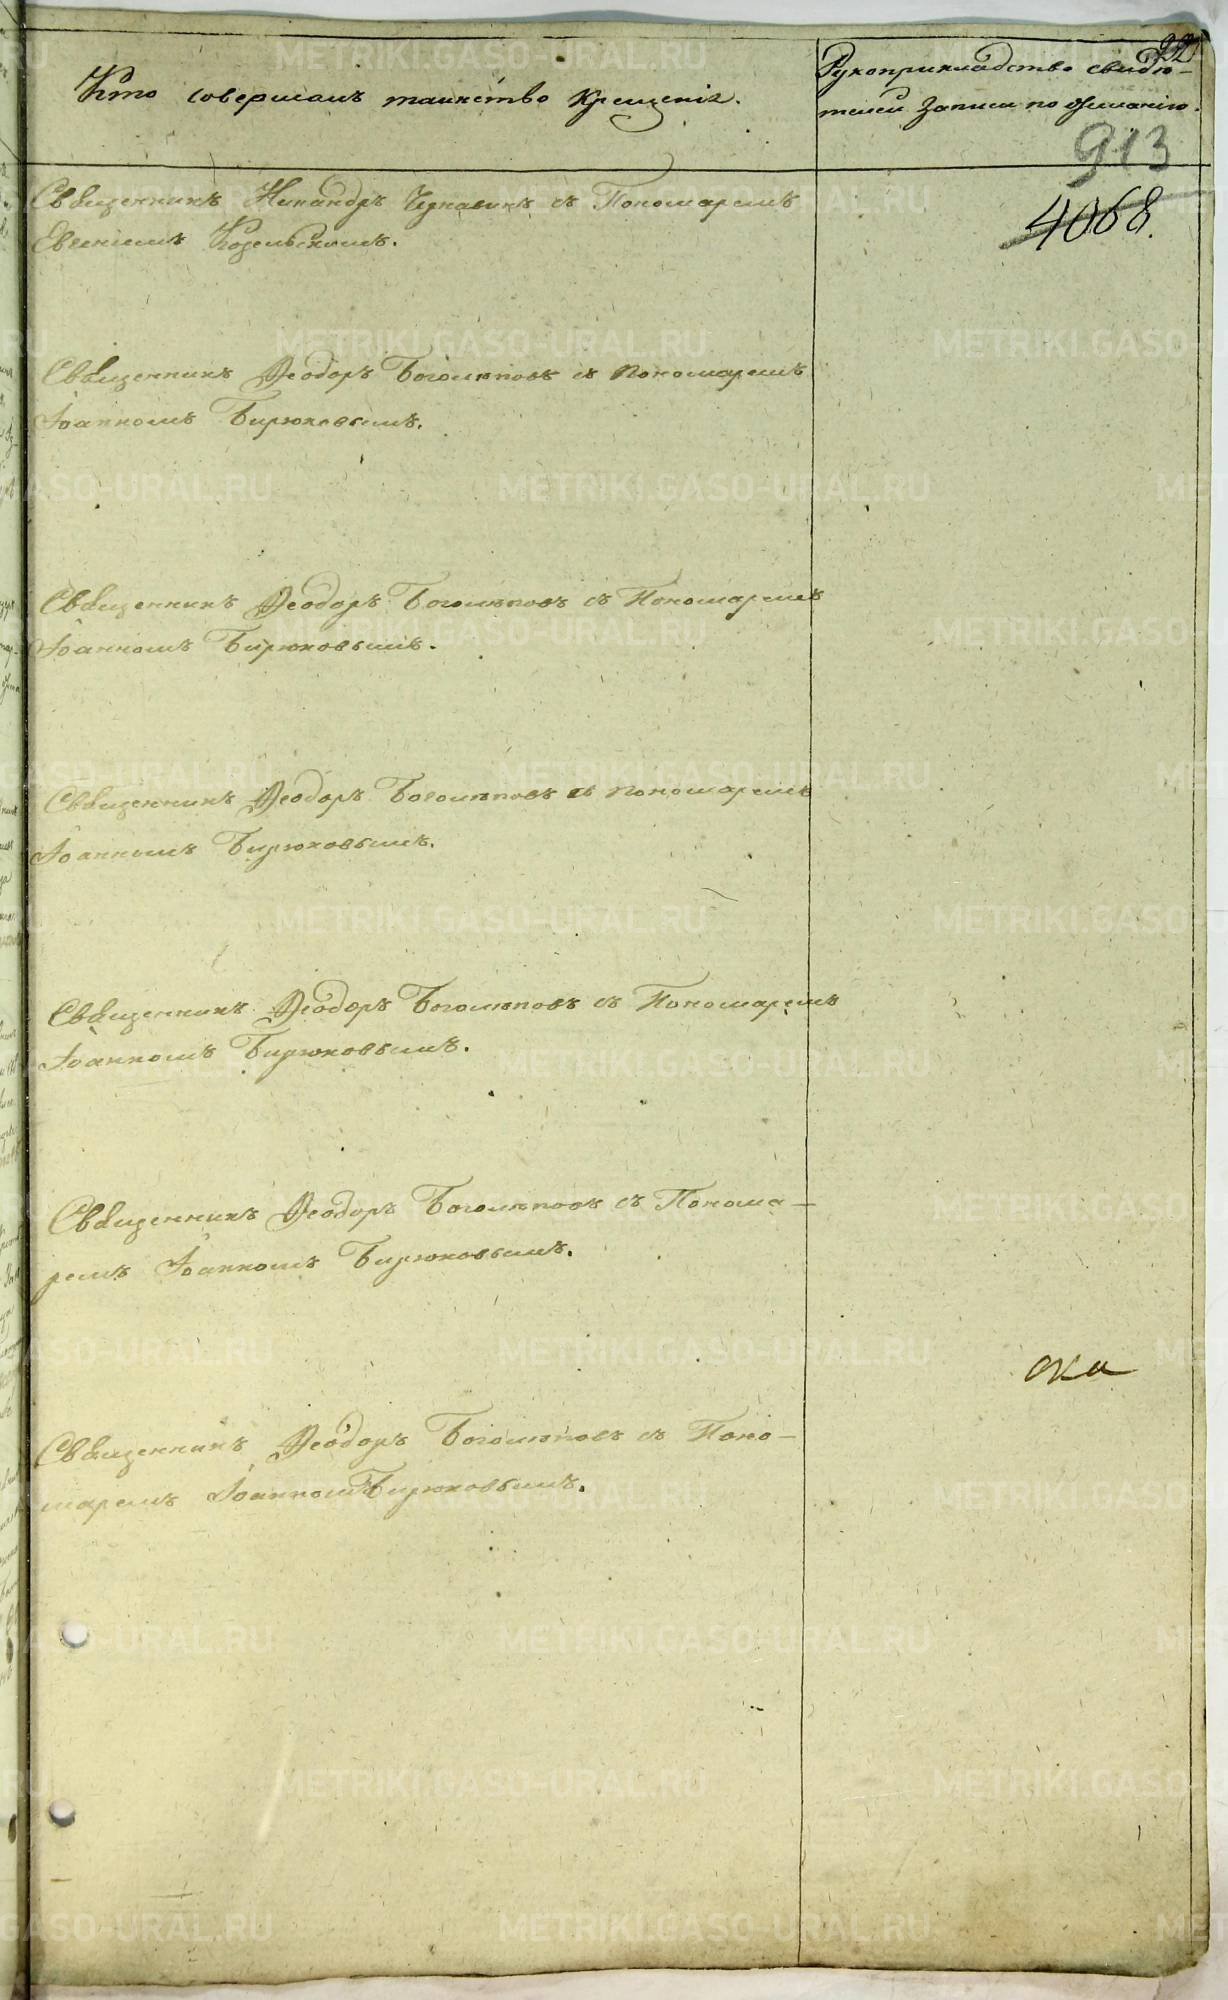 92
Кто совершалъ таинство крещенія.
Рукоприкладство свидѣ-
телей записи по желанію.
913
4068.
Священникъ Никандръ съ Пономаремъ
Евгеніемъ Козельскимъ.
Священникъ Ѳеодоръ Боголѣповъ съ пономаремъ
Іоанномъ Бирюковымъ.
Священникъ Ѳеодоръ Боголѣповъ съ Пономаремъ
Іоанномъ Бирюковымъ.
Священникъ Ѳеодоръ Боголѣповъ съ пономаремъ
Іоанномъ Бирюковымъ.
Священникъ Ѳеодоръ Боголѣповъ съ Пономаремъ
Іоанномъ Бирюковымъ.
Священникъ Ѳеодоръ Боголѣповъ съ Понома-
ремъ Іоанномъ Бирюковымъ.
Священникъ Ѳеодоръ Боголѣповъ съ Поно-
маремъ Іоанномъ Бирюковымъ.
METRIKI.GASO-URAL.RU